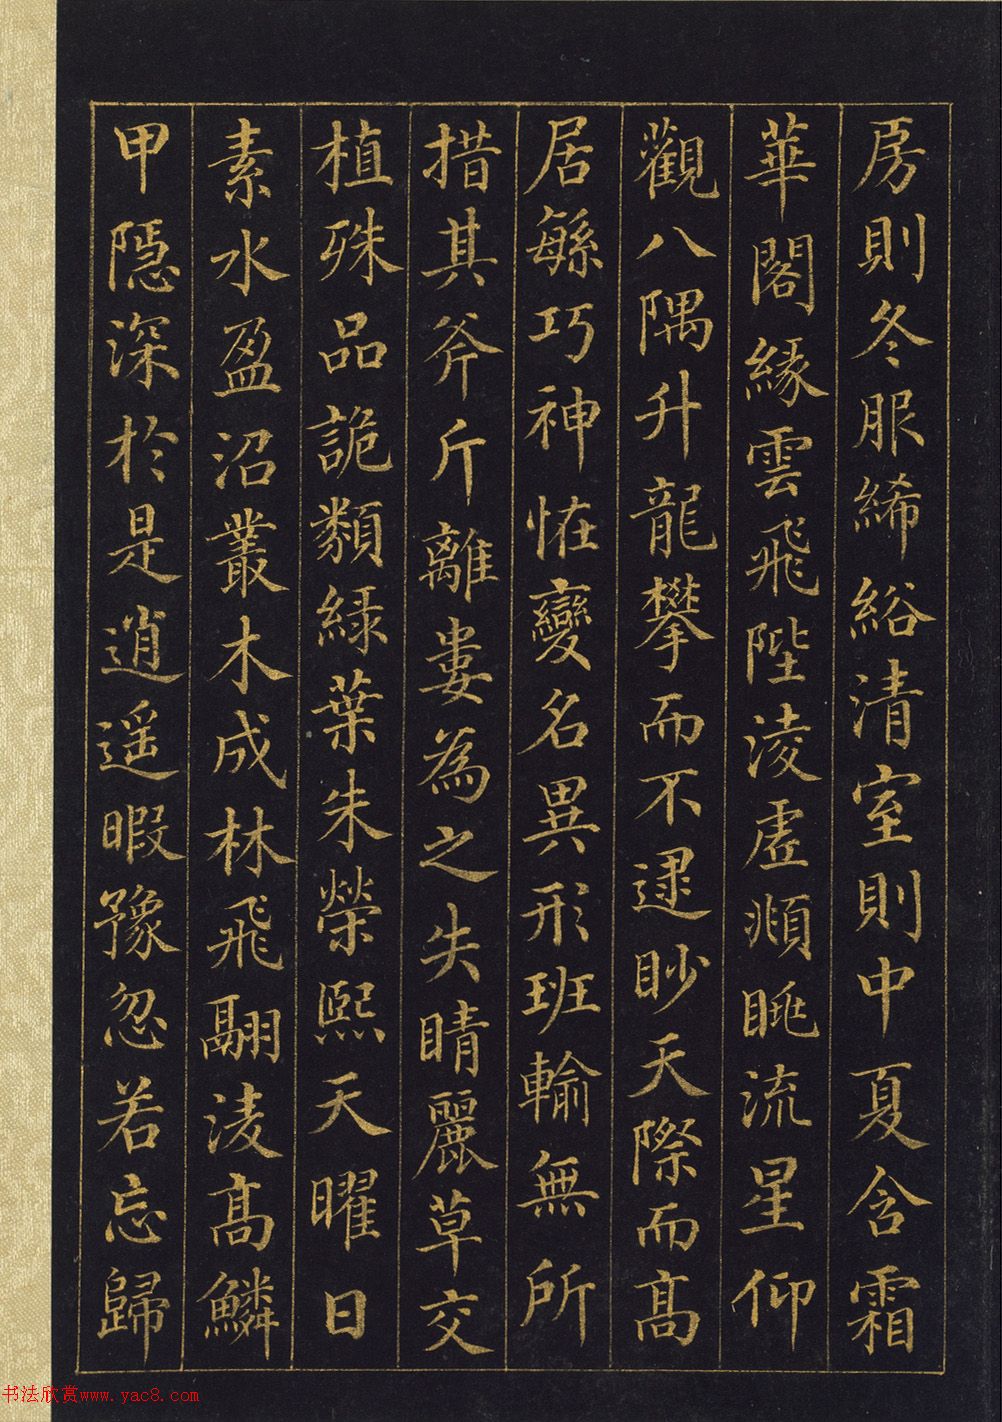 房則冬服絺綌清室則中夏含霜
華閣緣雲飛陛淩虛頫眺流星仰
觀八隅升龍攀而不逮眇天際而高
居緐巧神怪變名異形班輸無所
措其斧斤離婁為之失睛麗草交
植殊品詭類綠葉朱榮熙天曜日
素水盈沼叢木成林飛翮淩高鱗
甲隱深於是逍遥暇豫忽若忘歸
书法欣赏www.yac8.com